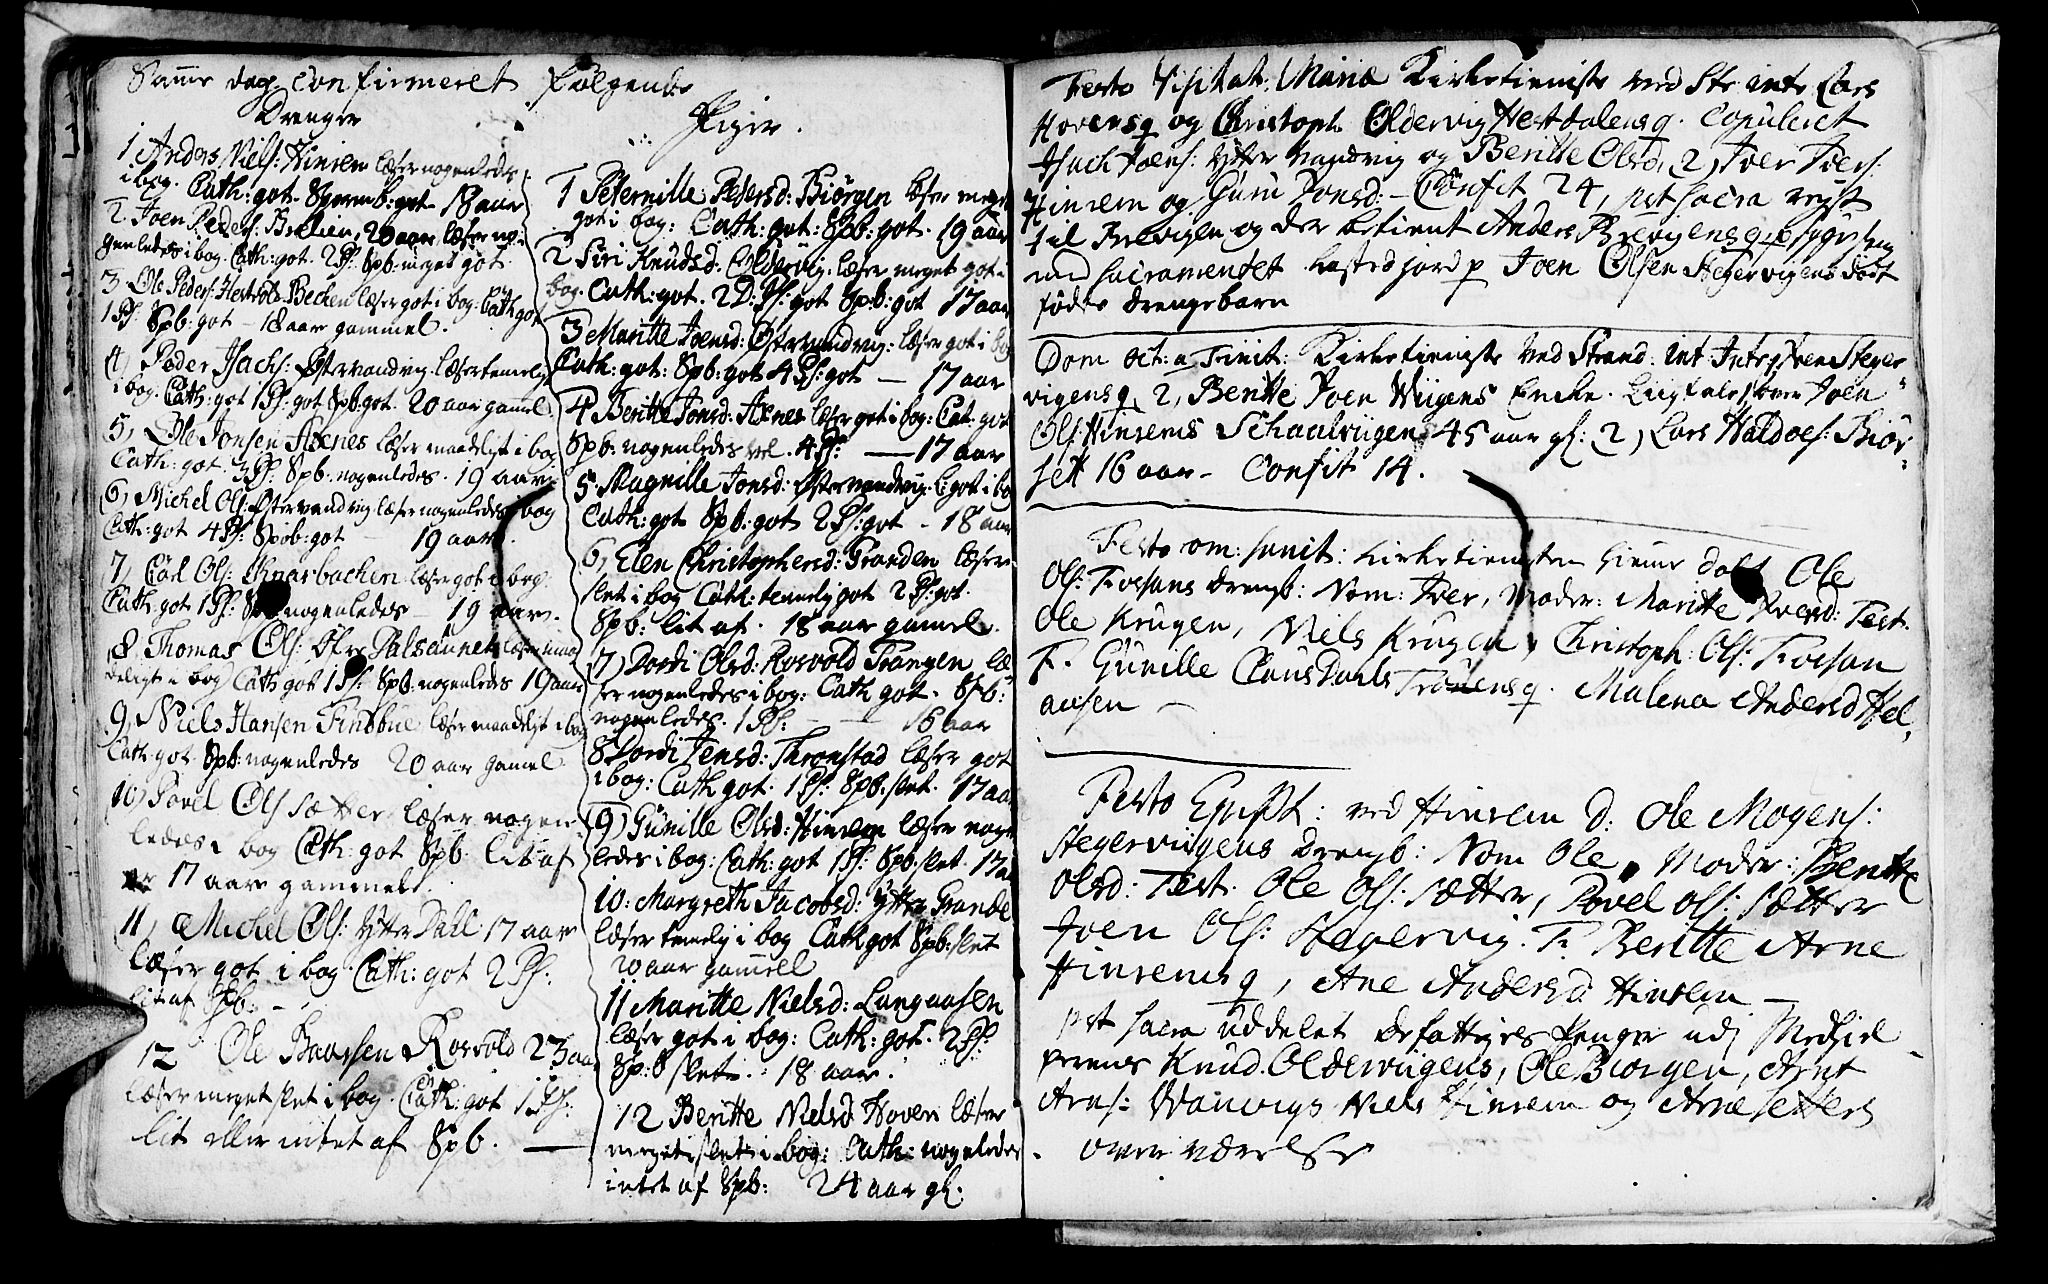 Samme dag confirmeret følgende
Drenger
1 Anders Niels: Hinsem læser nogenledes
i bog. Cath: got. Sp:nemb: got 18 aar
2. Joen Peders: Breklien, 20 aar læser no-
genledes i bog. Cath: got. 2 Ps: Spb: meget got.
3. Ole Peders: Hestvols Becken læser got i bog: Cath got
1 Ps: Spb: got - 18 aar gammel.
4, Peder Isachs: Østervandvig læser temelig
i bog. Cath: got 1 Ps: got Spb: got. 20 aar gamel
5, Ole Jonsen Axnes læser maadeligt i bog
Cath: got 3 Ps: Spb: nogenledes. 19 aar.
6, Michel Ols: Østervandvig læser nogenledes i bog
Cath: got 4 Ps: Spb: got - 19 aar.
7, Carl Ols: Knarbachen læser got i bog.
Cath: got 1 Ps: nogenledes - 19 aar.
8 Thomas Ols: Øfre Palsaunet læser maa
deligt i bog Cath got 1 Ps: Spb: nogenledes 19 aar
9, Niels Hansen Findbue læser maadeligt i bog
Cath: got Spb: nogenledes 20 aar gamel
10, Povel Ols Sætter læser nogen
ledes i bog Cath: got Spb: lit af
er 17 aar gammel.
11, Michel Ols: Ytter Dahl 17 aar
læser got i bog. Cath: got 2 Ps:
lit af Spb: -
12 Ole Baarsen Rosvold 23 aar
læser meget slet i bog. Cath: got 1 Ps:
lit eller intet af Spb. —
Piger.
1 Peternille Petersd: Biörgen læser meget
got i bog: Cath: got: Spb: got. 19 aar
2 Siri Knudsd: Oldervig: læser meget got i
bog. Cath: got. 2 D: Ps: got Spb: got 17 aar
3 Maritte Joensd: Østervandvig: læser got i bog
Cath: got: Spb: got 4 Ps: got — 17 aar
4 Beritte Jonsd: Axnes læser got i bog: Cat: got
Spb: nogenledes vel. 4 Ps: — 17 aar
5 Magnille Jonsd: Østervandvig: l: got i bog
Cath: got Spb: got 2 Ps: got - 18 aar
6, Elen Christophersd: Granden læser
slet i bog Cath: temelig got 2 Ps: got.
Spb: lit af. 18 aar gamel.
7, Dordi Olsd: Rosvold Trangen læ
ser nogenledes i bog: Cath got. Spb:
nogenledes. 1 Ps: — 16 aar
8 Dordi Jensd: Thronstad læser got
i bog: Cath got. 1 Ps: Spb: slet. 17 aar
9, Gunille Olsd: Hinsem læser nogen
ledes i bog: Cath: got 1 Ps: Spb: slet. 17 aar
10: Margreth Jacobsd: Ytter Grande
læser temelig i bog Cath got Spb: slet
20 aar gamell
11 Maritte Nielsd: Langaasen
læser got i bog: Cath: got. 2 Ps:
Sp:b slet. 18 aar.
12 Beritte Nielsd Hoven læser
meget slet i bog: Cath: nogenledes
intet af Spb: 24 aar gl.
Festo Visitat: Mariæ Kirketieniste ved Str: intr Lars
Hovensq og Christoph Oldervig Hestdalensq. Copuleret
Isach Joens: Ytter Vandvig og Beritte Olsd, 2, Iver Ivers:
Hinsem og Guru Jonsd: - Confit 24, pst sacra reyst
til Brevigen og der betient Anders Brevigens
med sacramentet. kasted jord p Joen Olsen Stegervigens død
fødte drengebarn
Dom oct: a Trinit: Kirketieniste ved Strand: Int Joen Steger-
vigensq, 2, Beritte Joen Wiigens Encke. Liigtale over Joen
Ols: Hinsems Schaalviigen 45 aar gl: 2, Lars Haldoes: Biör-
set 16 aar - Confit 14.
Festo om: sanct: kirketienisten hieme døbt Ole
Ols: Frossans drengb: Nom: Iver, Moder: Maritte Iversd: Test.
Ole Krugen, Niels Krugen, Christoph: Ols: Frossan
F. Gunille Claus Dahls Malena Andersd Hel,
aasen —
Festo Epiph: ved Hinsem D: Ole Mogens:
Stegerviigens drengb: Nom Ole, Moder: Beritte
Olsd: Test. Ole Ols: Sætter, Povel Ols: Sætter
Joen Ols: Stegervig. F. Beritte Arne
Hinsemsq, Ane Andersd Hinsem —
pst sacra uddelet de fattiges Penger udi Medhiel
perens Knud Olderviigens, Ole Biorgen, Arnt
Arns: Wanvigs Niels Hinsem og Arne Setters
overværelse